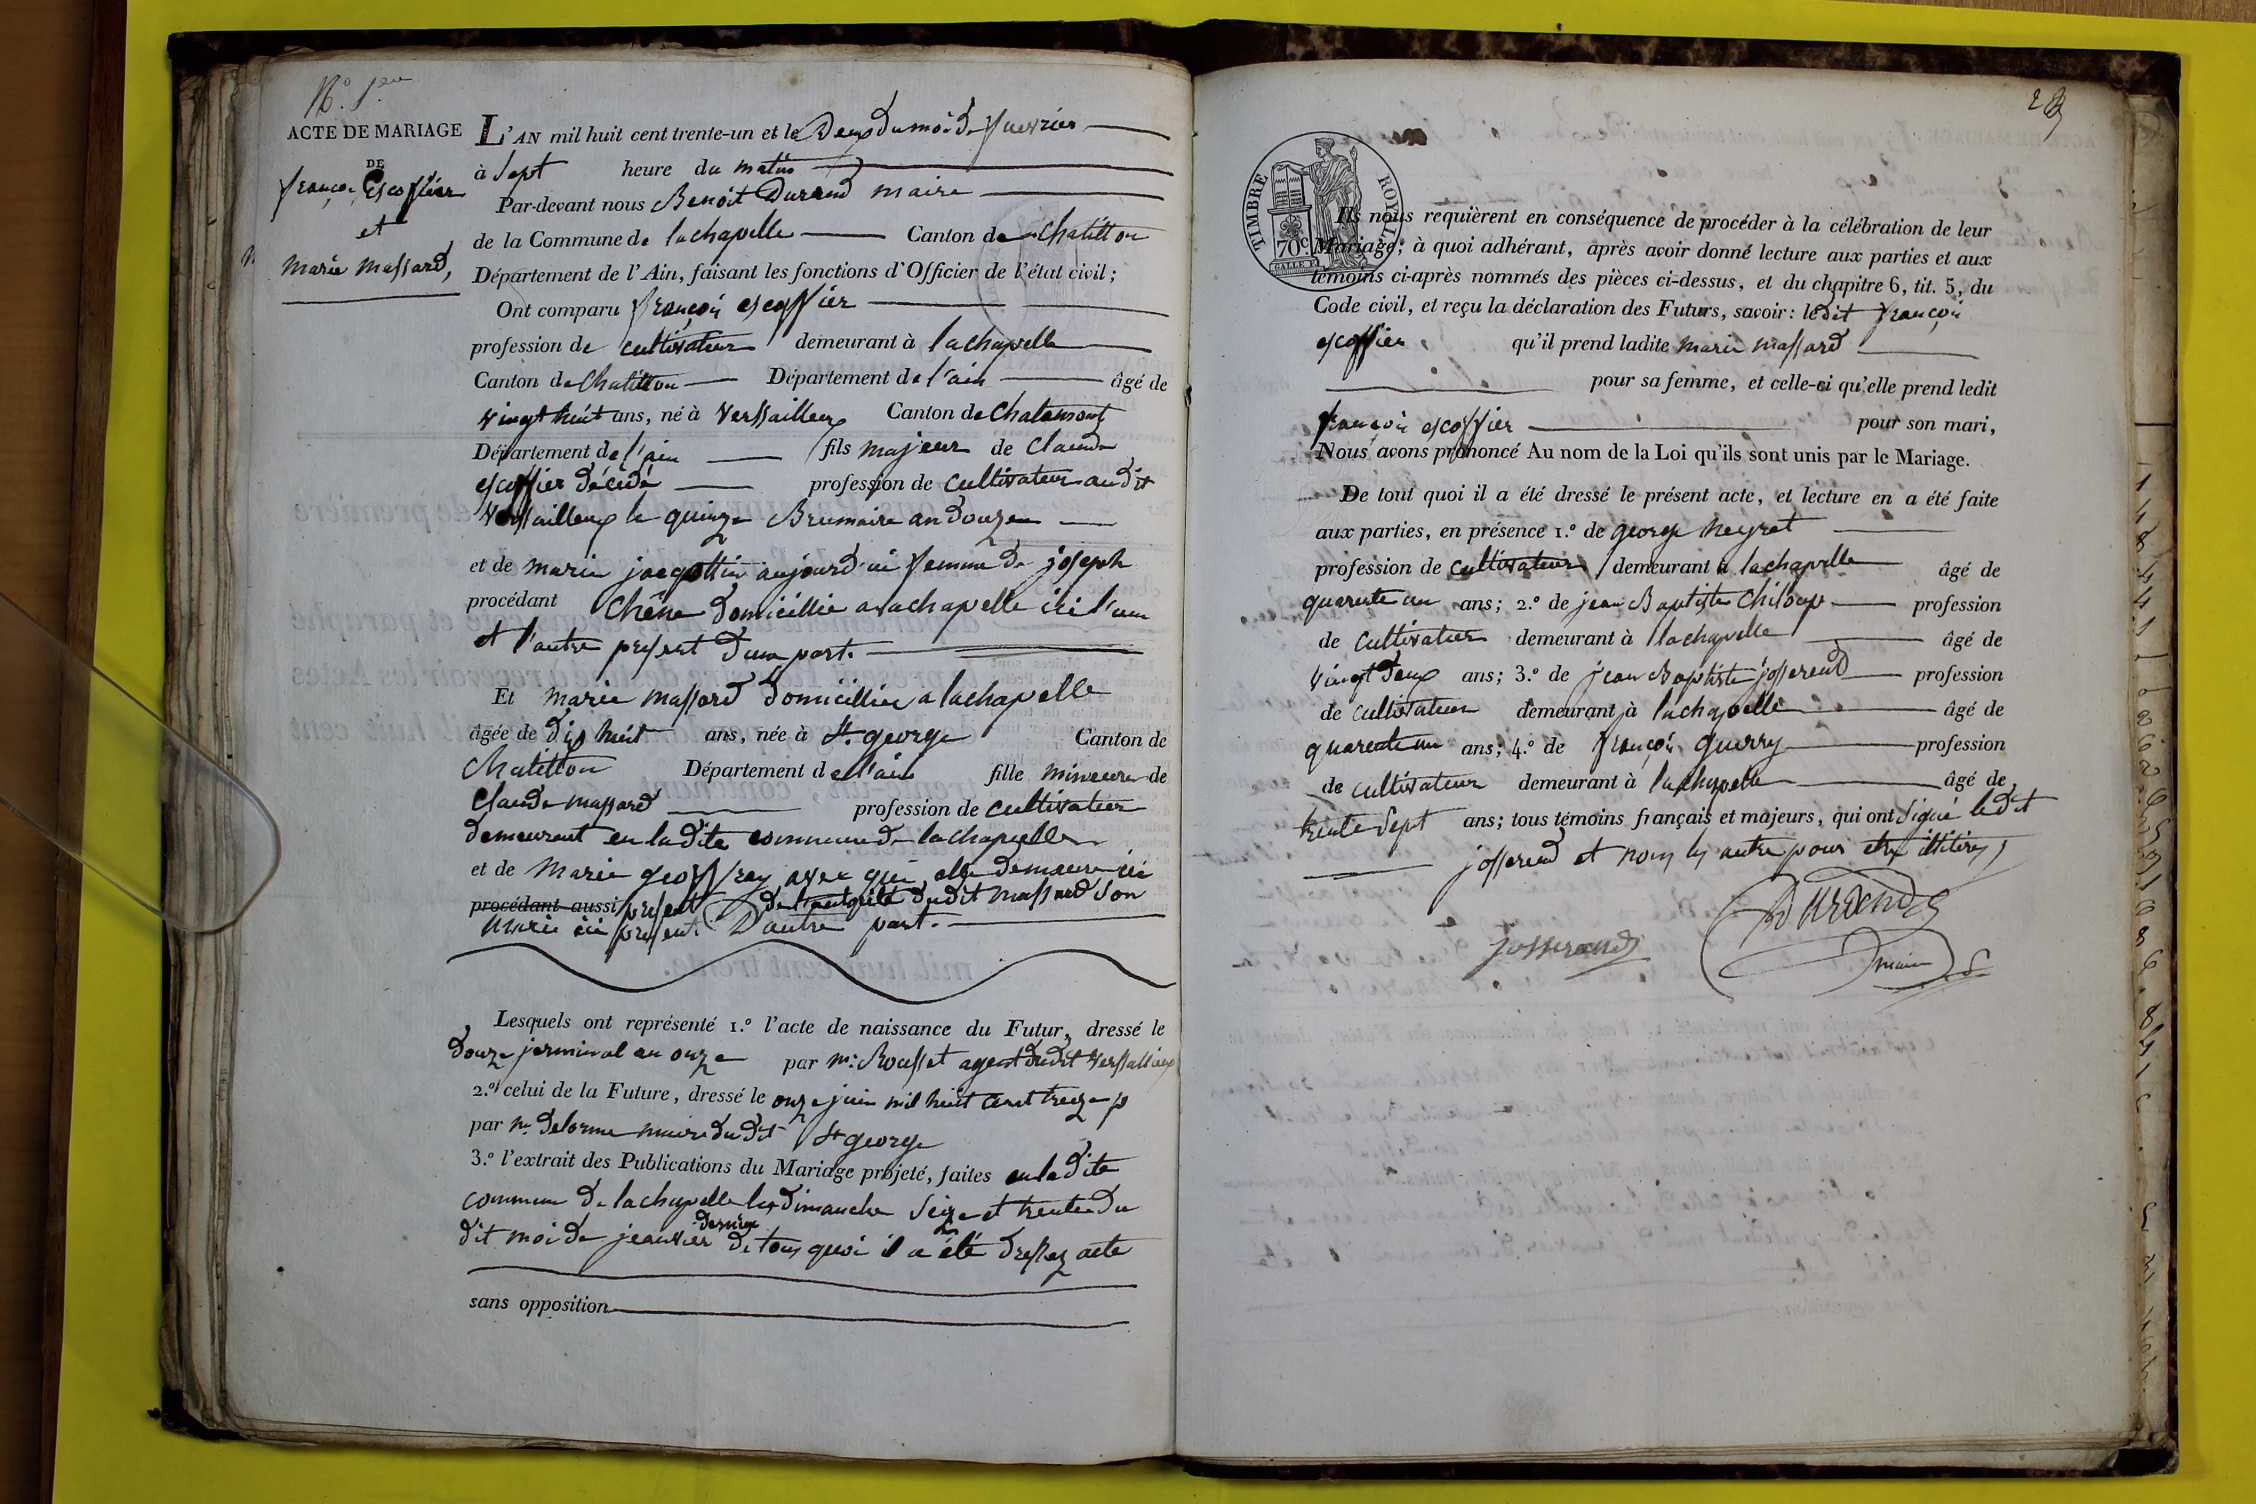 N.º 1.er
ACTE DE MARIAGE
DE
françoi Escoffier
et
marie massard,
L'AN mil huit cent trente-un et le Deux du moi de fuevrier
à Sept heure du matin
Par-devant nous Benoit Durand maire
de la Commune de lachapelle Canton de Chatillon
Département de l'Ain, faisant les fonctions d'Officier de l'état civil;
Ont comparu françoi escoffier
profession de cultivateur demeurant à lachapelle
Canton de Chatillon Département de l'ain âgé de
vingt huit ans, né à Versailleux Canton de Chalamont
Département de l'ain fils majeur de Claude
escoffier décédé profession de cultivateur audit
Versailleux le quinze Brumaire an douze
et de marie jacquottin aujourd'ui femme de joseph
procédant Chêne domicillié a lachapelle ici l'un
et l'autre present d'une part.
Et marie massard domicilliée a lachapelle
âgée de dix huit ans, née à St. george Canton de
Chatillon Département de l'ain fille mineure de
Claude massard profession de cultivateur
demeurant en ladite commune de lachapelle
et de Marie geoffray avec qui elle demeure ici
procédant aussi present de l'autorité dudit massard son
Marie ici present D'autre part.
Lesquels ont représenté 1.º l'acte de naissance du Futur, dressé le
douze jerminal an onze par mr. Rousset agent dudit Versailleux
2.º celui de la Future, dressé le onze juin mil huit cent treize
par mr Delorme maire du dit St george
3.º l'extrait des Publications du Mariage projeté, faites en ladite
commune de lachapelle les dimanche Seize et trente du
dit moi de jeanvier dernier de tous quoi il a été dressez acte
sans opposition
28
TIMBRE ROYAL
70c.
Ils nous requièrent en conséquence de procéder à la célébration de leur
Mariage; à quoi adhérant, après avoir donné lecture aux parties et aux
témoins ci-après nommés des pièces ci-dessus, et du chapitre 6, tit. 5, du
Code civil, et reçu la déclaration des Futurs, savoir: ledit françoi
escoffier qu'il prend ladite marie massard
pour sa femme, et celle-ci qu'elle prend ledit
françoi escoffier pour son mari,
Nous avons prononcé Au nom de la Loi qu'ils sont unis par le Mariage.
De tout quoi il a été dressé le présent acte, et lecture en a été faite
aux parties, en présence 1.º de george neyret
profession de cultivateur demeurant à lachapelle âgé de
quarente un ans; 2.º de jean Baptiste Chiloup profession
de cultivateur demeurant à lachapelle âgé de
vingt deux ans; 3.º de jean Baptiste josserand profession
de cultivateur demeurant à lachapelle âgé de
quarente un ans; 4.º de françoi guerry profession
de cultivateur demeurant à lachapelle âgé de
trente Sept ans; tous témoins français et majeurs, qui ont Signé ledit
josserand et non les autre pour etre illitérés
josserand
Durand
maire